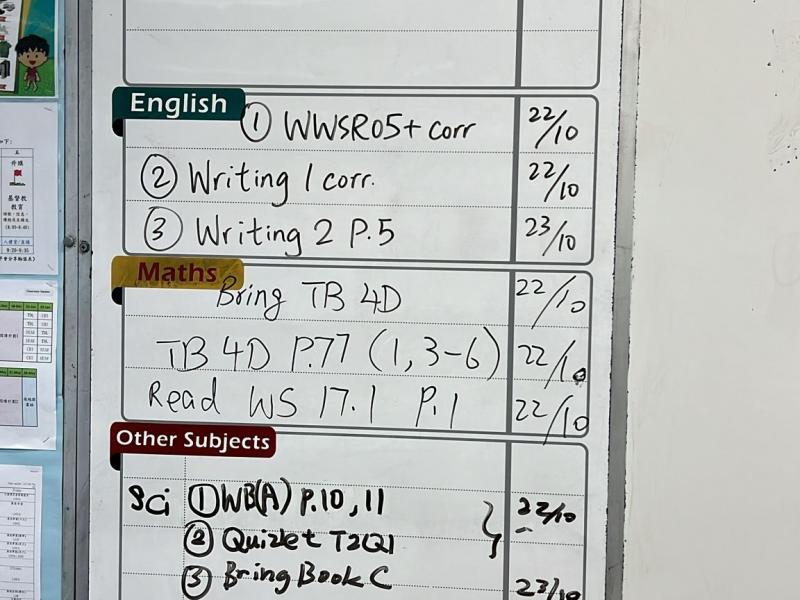 English
① WWSR05+ corr 22/10
② Writing 1 corr. 22/10
③ Writing 2 P.5 23/10
Maths
Bring TB 4D 22/10
TB 4D P.77 (1, 3-6) 22/10
Read WS 17.1 P.1 22/10
Other Subjects
Sci ① WB(A) P.10, 11
② Quizlet T2Q1 22/10
③ Bring Book C 23/10
五
升旗
基督教
教育